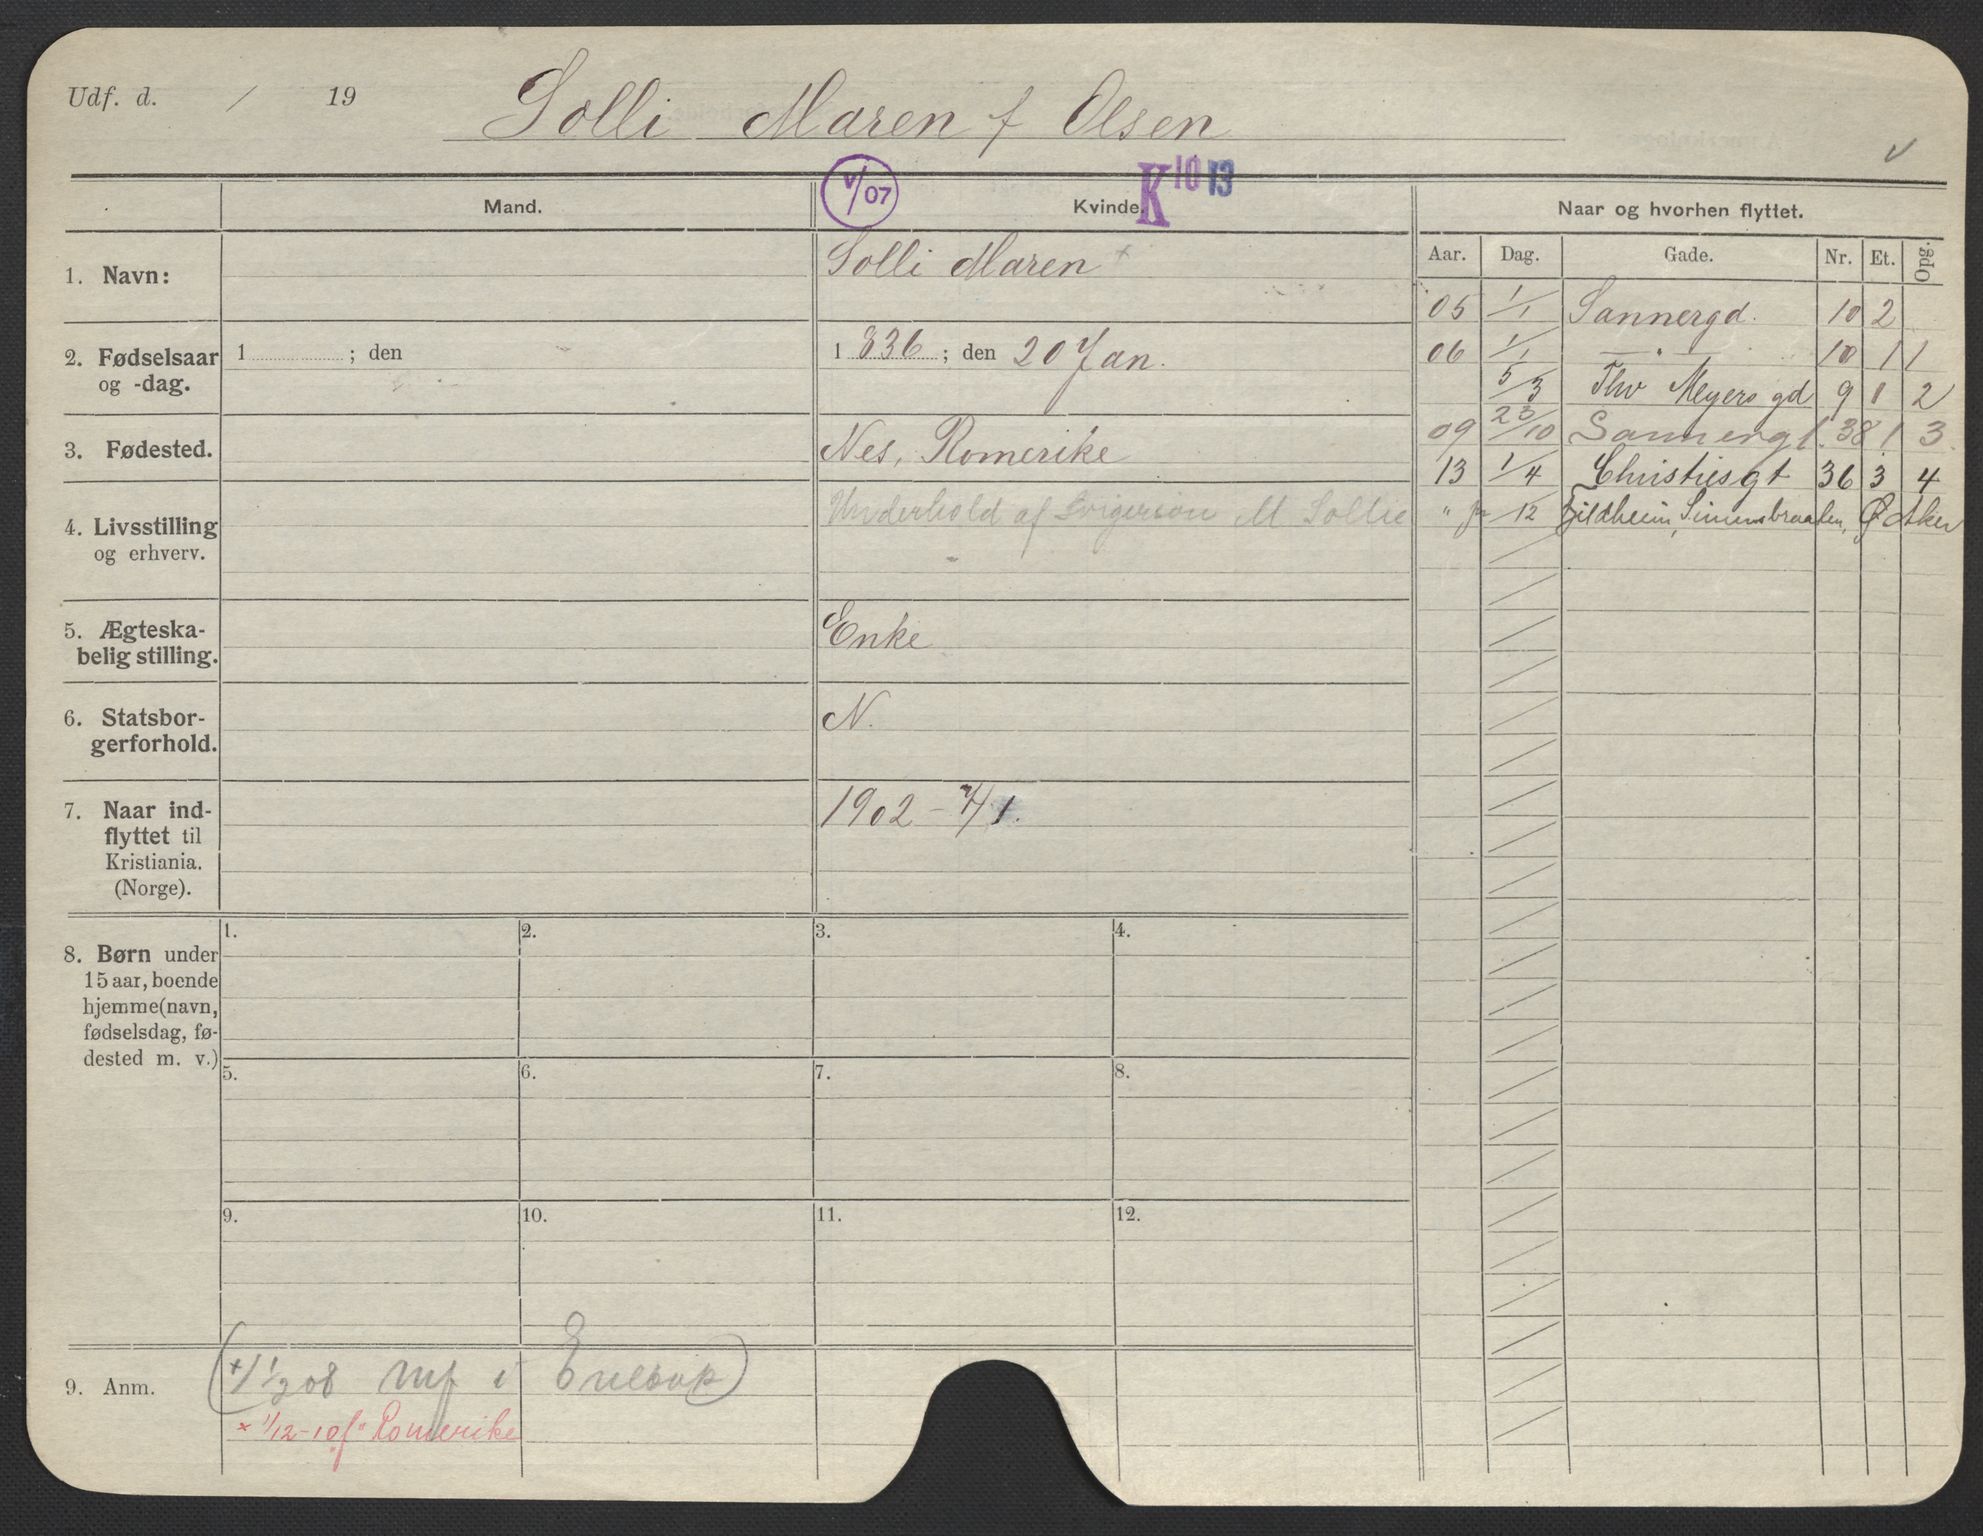 Udf. d. / 19
Solli Maren f Olsen
v
V/07
K 10 13
Mand.
Kvinde.
Naar og hvorhen flyttet.
Aar. Dag. Gade. Nr. Et. Opg.
1. Navn:
Solli Maren +
2. Fødselsaar
og -dag.
1 ; den
1 836 ; den 20 Jan.
3. Fødested.
Nes, Romerike
4. Livsstilling
og erhverv.
Underhold af Svigersøn M Sollie
5. Ægteska-
belig stilling.
Enke
6. Statsbor-
gerforhold.
N.
7. Naar ind-
flyttet til
Kristiania.
(Norge).
1902 -
8. Børn under
15 aar, boende
hjemme (navn,
fødselsdag, fø-
dested m. v.)
1. 2. 3. 4.
5. 6. 7. 8.
9. 10. 11. 12.
05 1/1 Sannergd. 10 2
06 1/1 — " — 10 1 1
5/3 Thv Meyers gd 9 1 2
09 23/10 Sannergt. 38 1 3
13 1/4 Christiesgt 36 3 4
" 12 Sinsensbraaten, Ø Aker
9. Anm.
(+/ 08 i
× 1/12-10 f" Romerike